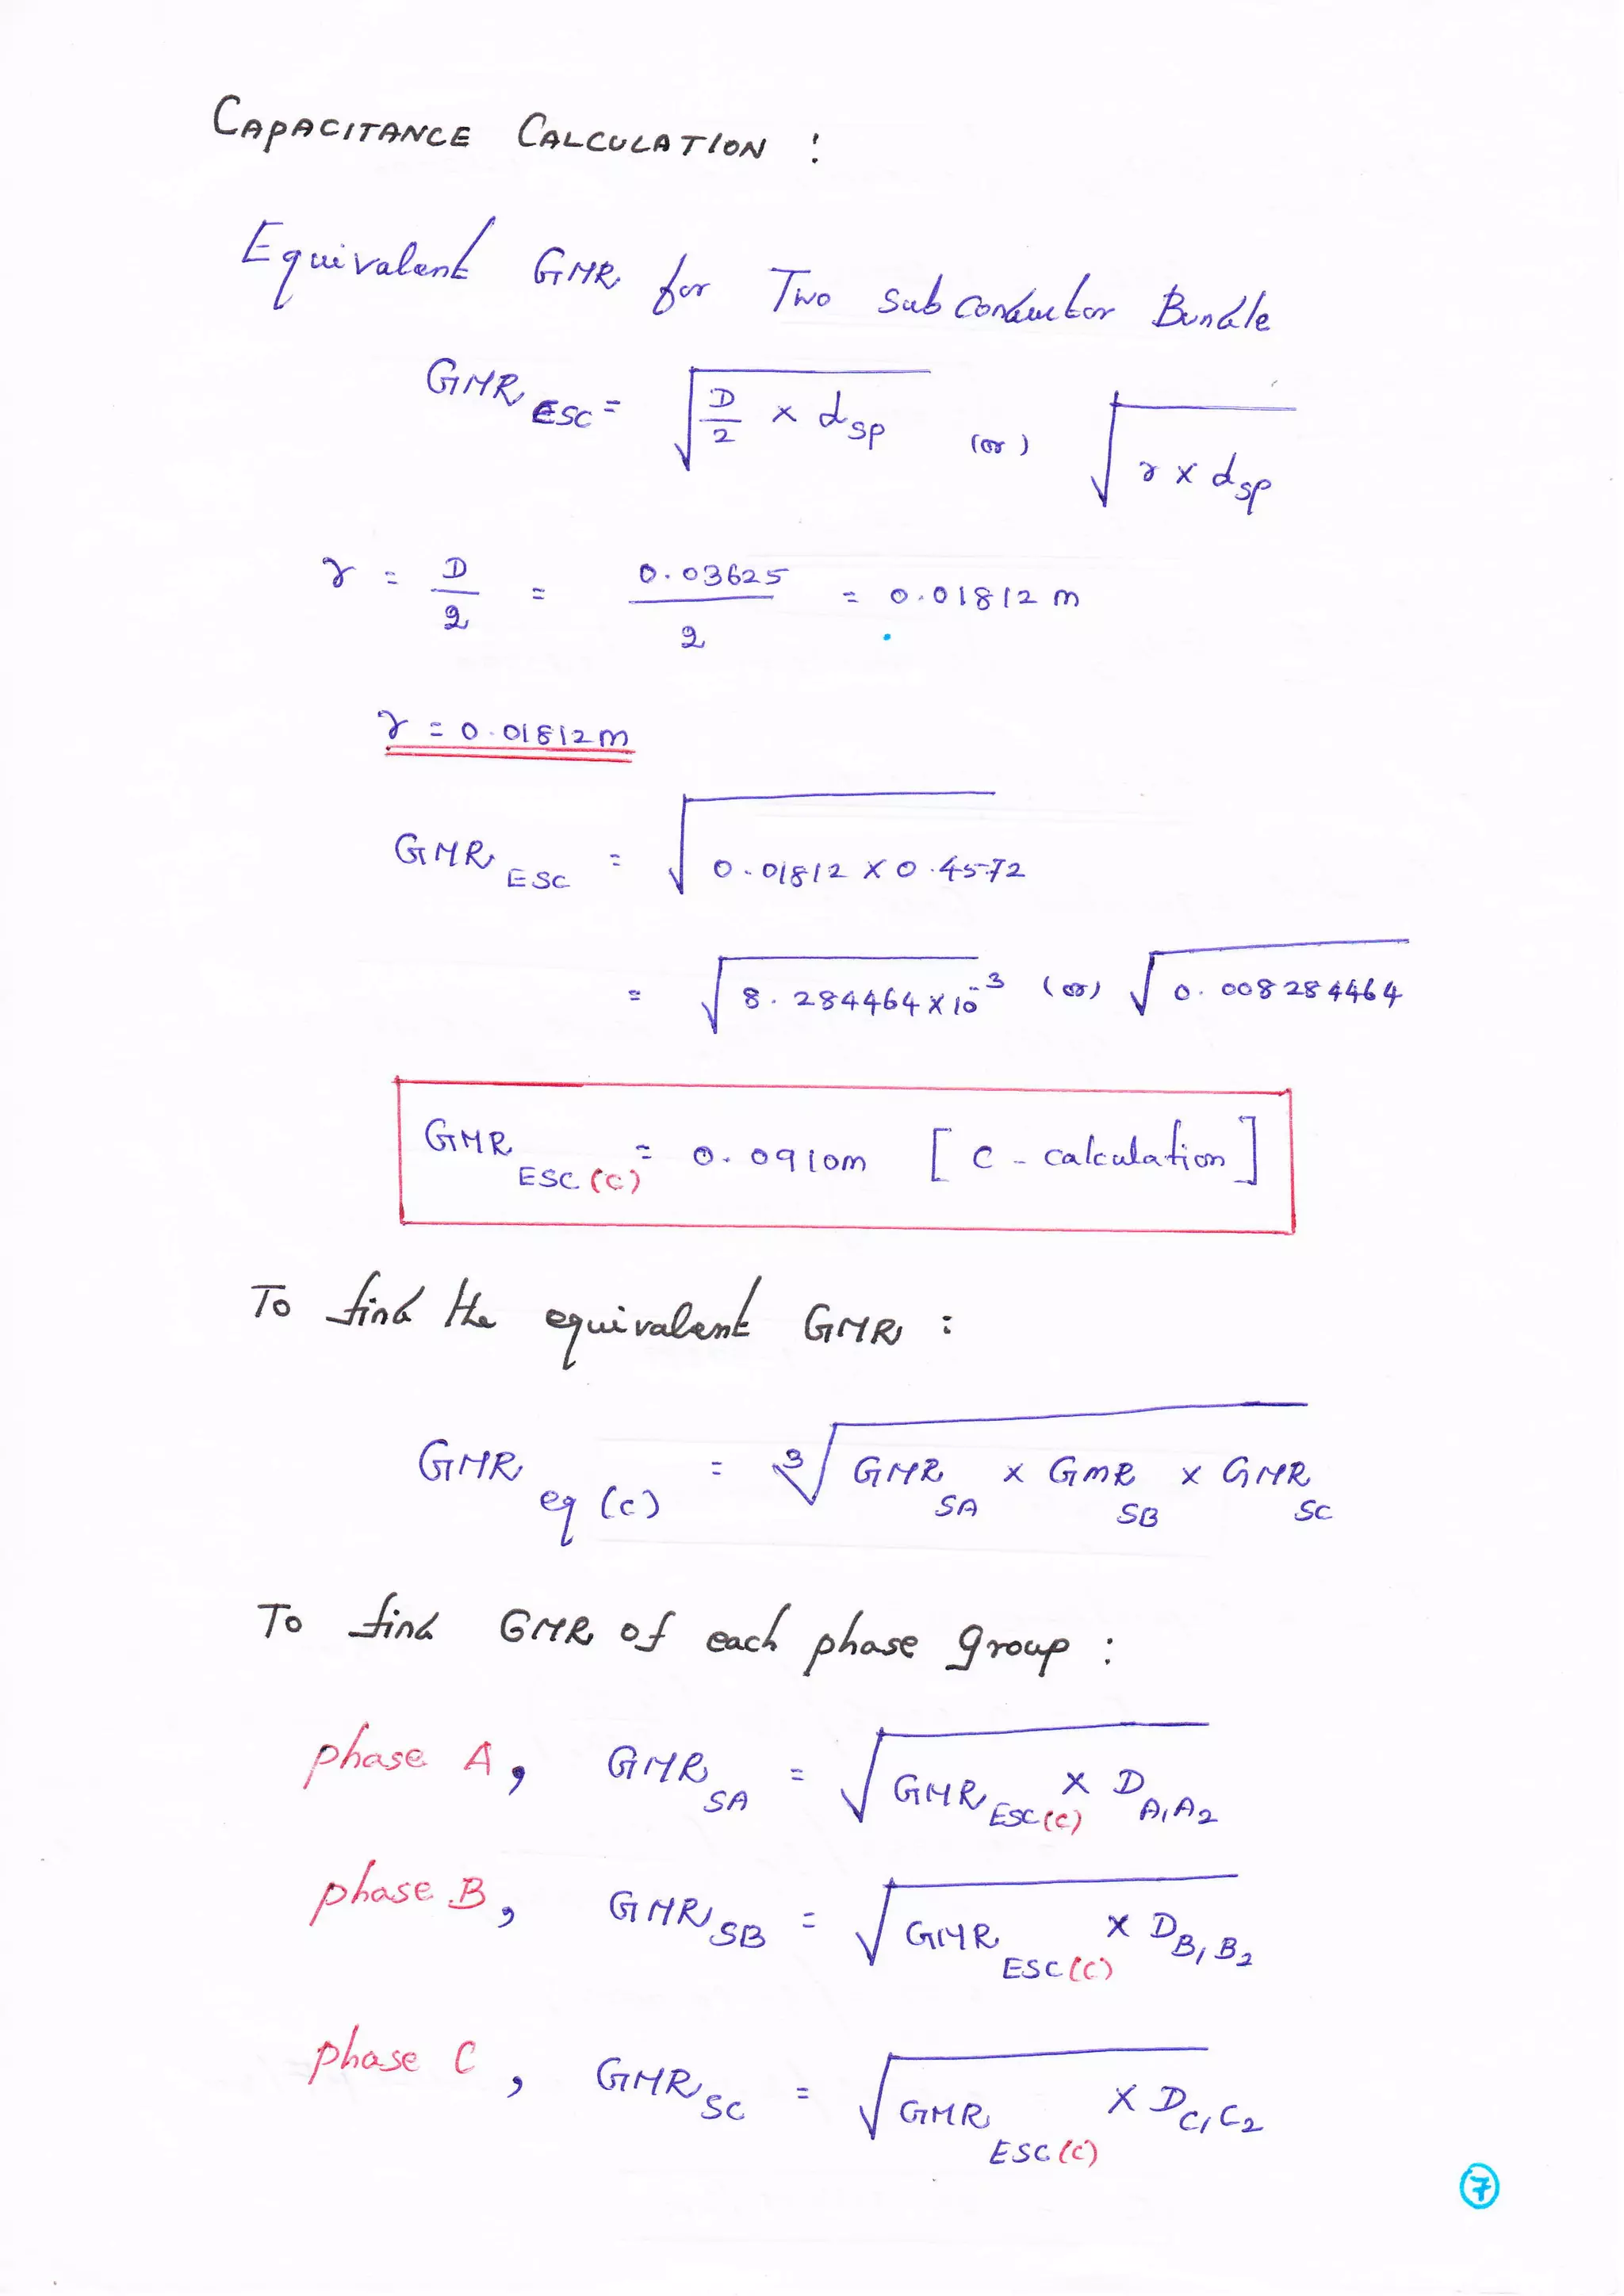 CAPACITANCE CALCULATION :
Equivalent GMR for Two Sub conductor Bundle
GMR ESC = √(D/2 × dsp) (or) √(r × dsp)
r = D/2 = 0.03625/2 = 0.01812 m
r = 0.01812m
GMR ESC = √(0.01812 × 0.4572)
= √(8.284464 × 10⁻³) (or) √(0.008284464)
GMR ESC (C) = 0.0910m [ C - calculation ]
To find the equivalent GMR :
GMR eq (c) = ³√(GMR SA × GMR SB × GMR SC)
To find GMR of each phase group :
phase A, GMR SA = √(GMR ESC(C) × D A1A2)
phase B, GMR SB = √(GMR ESC(C) × D B1B2)
phase C, GMR SC = √(GMR ESC(C) × D C1C2)
7